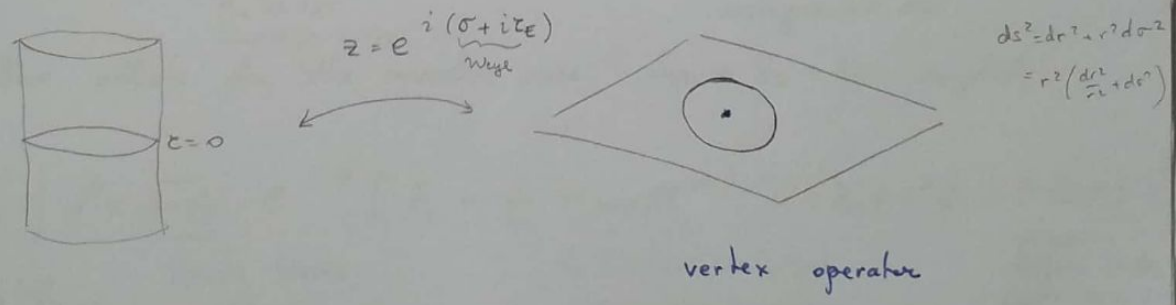 z = e^{i(σ + iτ_E)}
Weyl
τ = 0
ds² = dr² + r² dσ²
= r² (dr²/r² + dσ²)
vertex operator